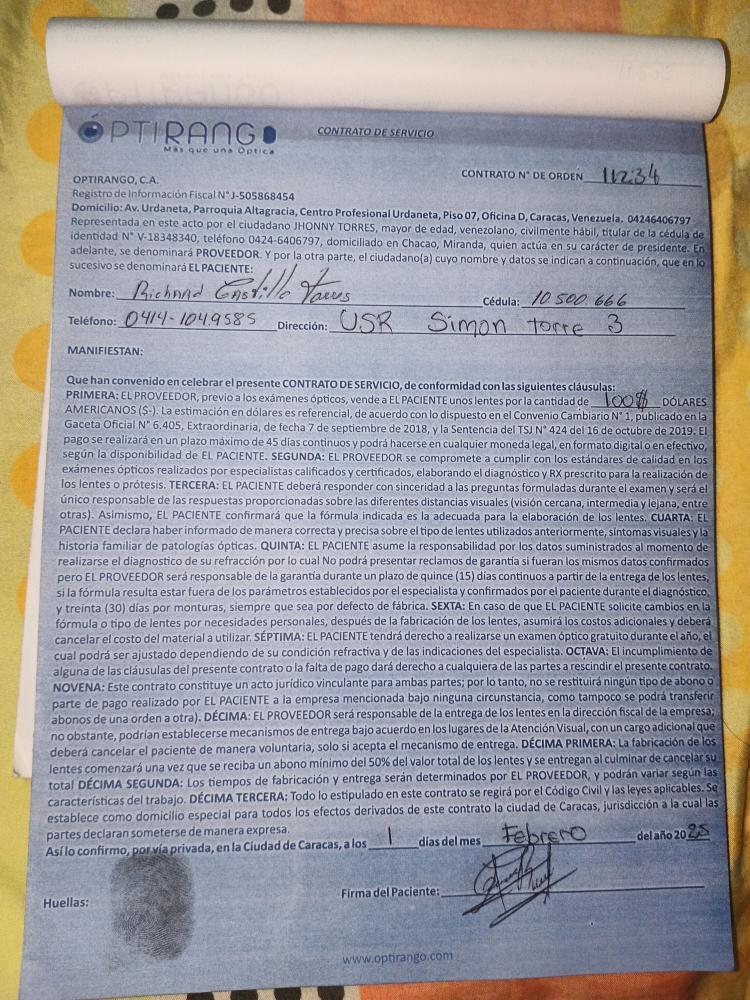 ÓPTIRANGO
Más que una Óptica
CONTRATO DE SERVICIO
CONTRATO N° DE ORDEN 11234
OPTIRANGO, C.A.
Registro de Información Fiscal N° J-505868454
Domicilio: Av. Urdaneta, Parroquia Altagracia, Centro Profesional Urdaneta, Piso 07, Oficina D, Caracas, Venezuela. 04246406797
Representada en este acto por el ciudadano JHONNY TORRES, mayor de edad, venezolano, civilmente hábil, titular de la cédula de
identidad N° V-18348340, teléfono 0424-6406797, domiciliado en Chacao, Miranda, quien actúa en su carácter de presidente. En
adelante, se denominará PROVEEDOR. Y por la otra parte, el ciudadano(a) cuyo nombre y datos se indican a continuación, que en lo
sucesivo se denominará EL PACIENTE:
Nombre: Richard Castillo Cédula: 10 500 666
Teléfono: 0414-1049585 Dirección: USR Simon torre 3
MANIFIESTAN:
Que han convenido en celebrar el presente CONTRATO DE SERVICIO, de conformidad con las siguientes cláusulas:
PRIMERA: EL PROVEEDOR, previo a los exámenes ópticos, vende a EL PACIENTE unos lentes por la cantidad de 100$ DÓLARES
AMERICANOS (S-). La estimación en dólares es referencial, de acuerdo con lo dispuesto en el Convenio Cambiario N° 1, publicado en la
Gaceta Oficial N° 6.405, Extraordinaria, de fecha 7 de septiembre de 2018, y la Sentencia del TSJ N° 424 del 16 de octubre de 2019. El
pago se realizará en un plazo máximo de 45 días continuos y podrá hacerse en cualquier moneda legal, en formato digital o en efectivo,
según la disponibilidad de EL PACIENTE. SEGUNDA: EL PROVEEDOR se compromete a cumplir con los estándares de calidad en los
exámenes ópticos realizados por especialistas calificados y certificados, elaborando el diagnóstico y RX prescrito para la realización de
los lentes o prótesis. TERCERA: EL PACIENTE deberá responder con sinceridad a las preguntas formuladas durante el examen y será el
único responsable de las respuestas proporcionadas sobre las diferentes distancias visuales (visión cercana, intermedia y lejana, entre
otras). Asimismo, EL PACIENTE confirmará que la fórmula indicada es la adecuada para la elaboración de los lentes. CUARTA: EL
PACIENTE declara haber informado de manera correcta y precisa sobre el tipo de lentes utilizados anteriormente, síntomas visuales y la
historia familiar de patologías ópticas. QUINTA: EL PACIENTE asume la responsabilidad por los datos suministrados al momento de
realizarse el diagnostico de su refracción por lo cual No podrá presentar reclamos de garantía si fueran los mismos datos confirmados
pero EL PROVEEDOR será responsable de la garantía durante un plazo de quince (15) días continuos a partir de la entrega de los lentes,
si la fórmula resulta estar fuera de los parámetros establecidos por el especialista y confirmados por el paciente durante el diagnóstico,
y treinta (30) días por monturas, siempre que sea por defecto de fábrica. SEXTA: En caso de que EL PACIENTE solicite cambios en la
fórmula o tipo de lentes por necesidades personales, después de la fabricación de los lentes, asumirá los costos adicionales y deberá
cancelar el costo del material a utilizar. SÉPTIMA: EL PACIENTE tendrá derecho a realizarse un examen óptico gratuito durante el año, el
cual podrá ser ajustado dependiendo de su condición refractiva y de las indicaciones del especialista. OCTAVA: El incumplimiento de
alguna de las cláusulas del presente contrato o la falta de pago dará derecho a cualquiera de las partes a rescindir el presente contrato.
NOVENA: Este contrato constituye un acto jurídico vinculante para ambas partes; por lo tanto, no se restituirá ningún tipo de abono o
parte de pago realizado por EL PACIENTE a la empresa mencionada bajo ninguna circunstancia, como tampoco se podrá transferir
abonos de una orden a otra). DÉCIMA: EL PROVEEDOR será responsable de la entrega de los lentes en la dirección fiscal de la empresa;
no obstante, podrían establecerse mecanismos de entrega bajo acuerdo en los lugares de la Atención Visual, con un cargo adicional que
deberá cancelar el paciente de manera voluntaria, solo si acepta el mecanismo de entrega. DÉCIMA PRIMERA: La fabricación de los
lentes comenzará una vez que se reciba un abono mínimo del 50% del valor total de los lentes y se entregan al culminar de cancelar su
total DÉCIMA SEGUNDA: Los tiempos de fabricación y entrega serán determinados por EL PROVEEDOR, y podrán variar según las
características del trabajo. DÉCIMA TERCERA: Todo lo estipulado en este contrato se regirá por el Código Civil y las leyes aplicables. Se
establece como domicilio especial para todos los efectos derivados de este contrato la ciudad de Caracas, jurisdicción a la cual las
partes declaran someterse de manera expresa.
Así lo confirmo, por vía privada, en la Ciudad de Caracas, a los 1 días del mes Febrero del año 2025
Huellas:
Firma del Paciente:
www.optirango.com